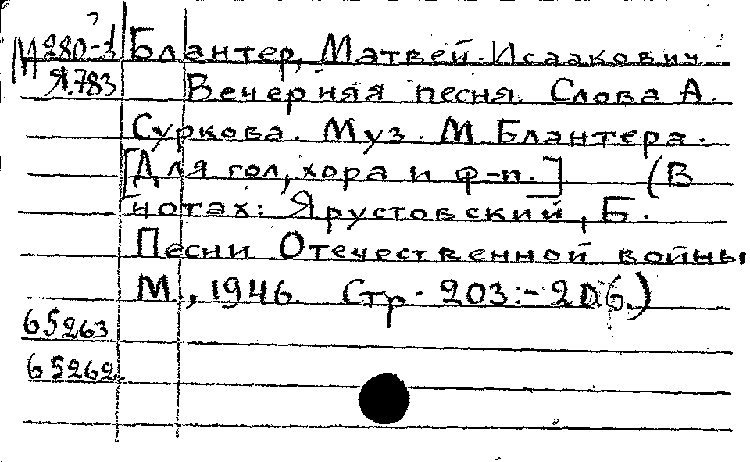 М 280-1 Блантер, Матвей Исаакович
Я.783 Вечерняя песня. Слова А.
Суркова. Муз. М Блантера.
[Для гол, хора и ф-п.] (В
нотах: Ярустовский, Б.
Песни Отечественной войны
М., 1946. Стр. 203:-206.)
65263
65262